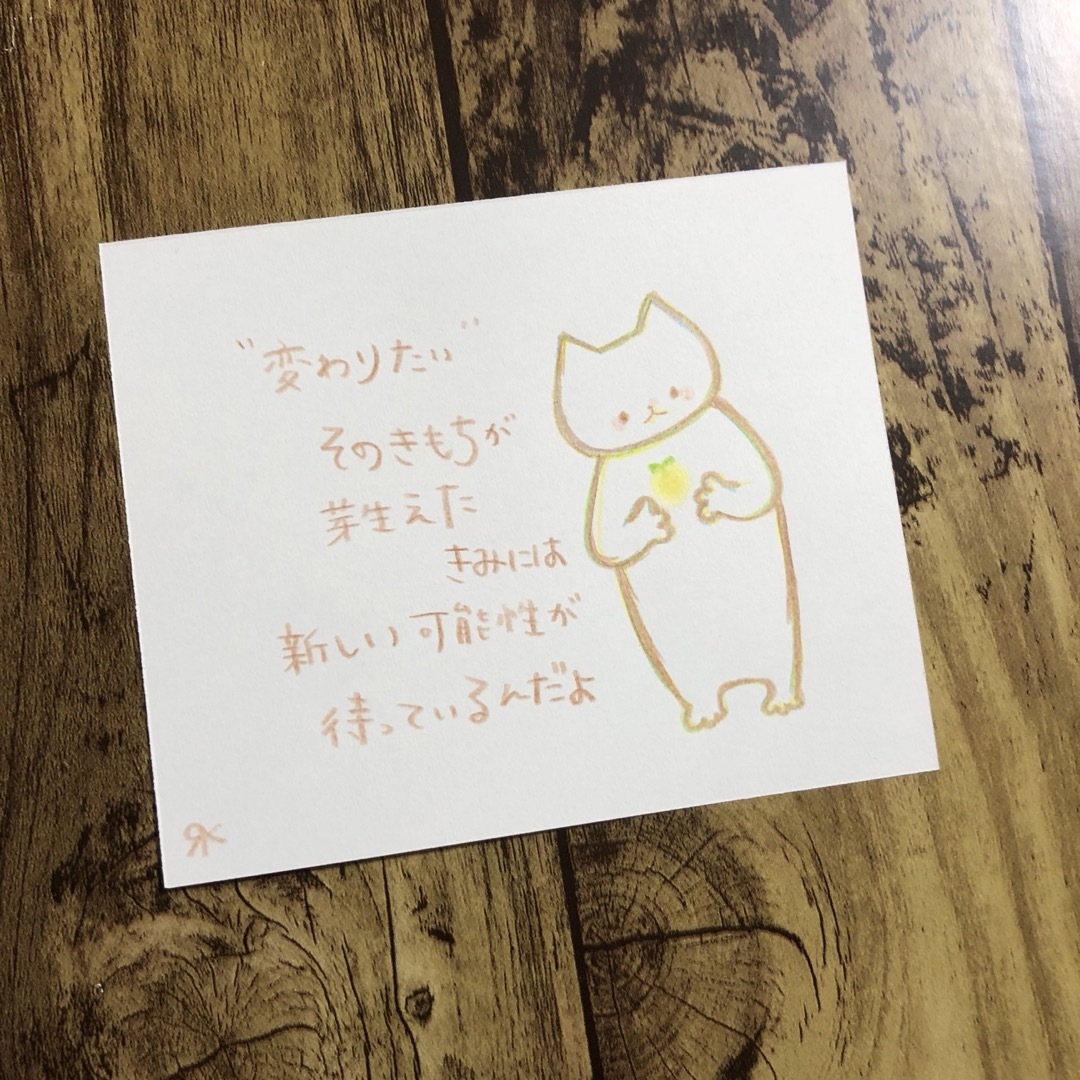 "変わりたい"
そのきもちが
芽生えた
きみには
新しい可能性が
待っているんだよ